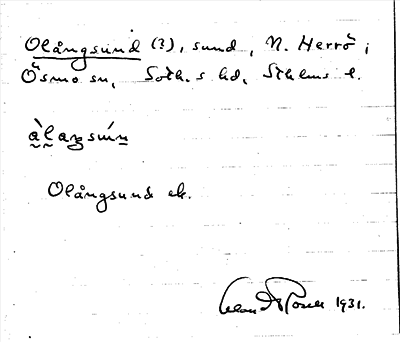 Olångsund (?), sund, N. Herrö i
Ösmo sn, Soth.s hd, Sthlms l.
Olångsund ek.
1931.